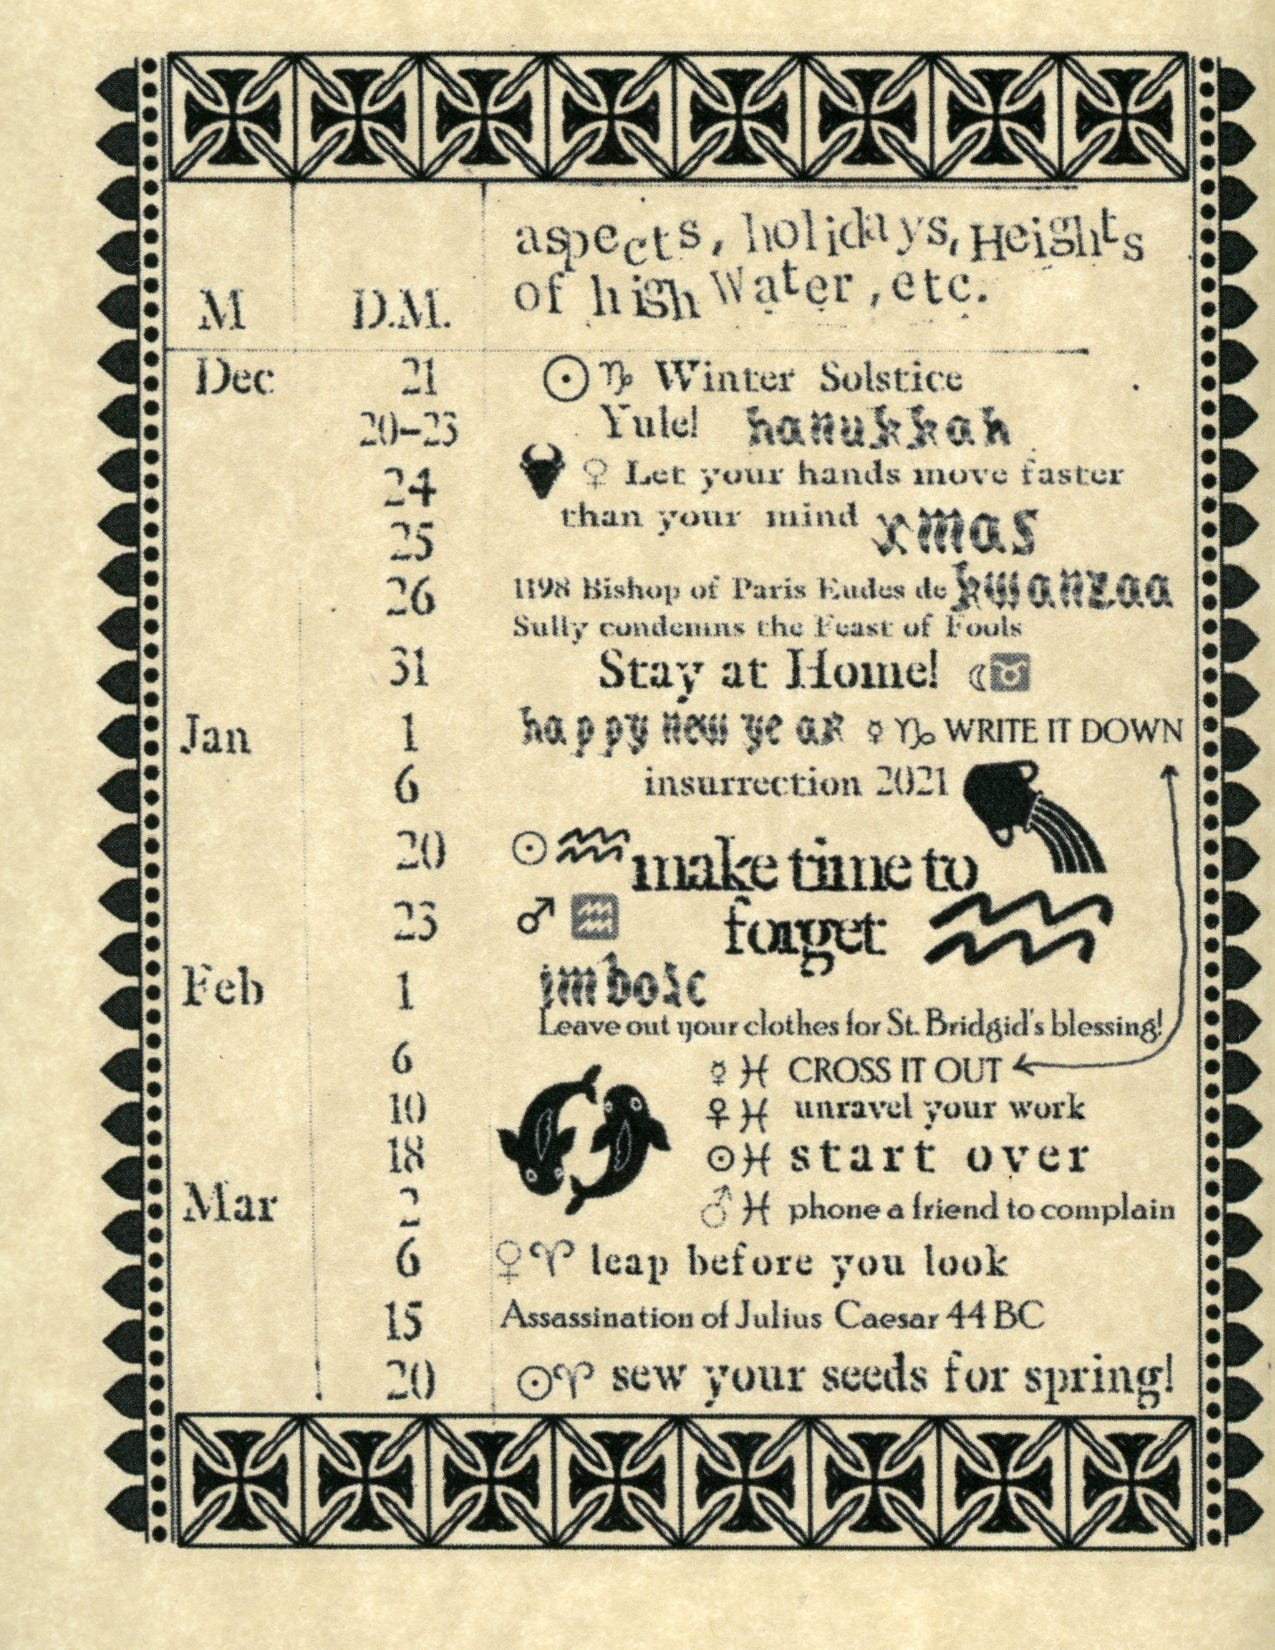 aspects, holidays, Heights
M D.M. of high Water, etc.
Dec 21 ☉ ♑ Winter Solstice
20-23 Yule! hanukkah
24 ♀ Let your hands move faster
than your mind
25 xmas
26 1198 Bishop of Paris Eudes de kwanzaa
Sully condemns the Feast of Fools
31 Stay at Home! ☾ ♉
Jan 1 happy new year ☿ ♑ WRITE IT DOWN
6 insurrection 2021
20 ☉ ♒ make time to
23 ♂ ♒ forget ♒
Feb 1 imbolc
Leave out your clothes for St. Bridgid's blessing!
6 ☿ ♓ CROSS IT OUT
10 ♀ ♓ unravel your work
18 ☉ ♓ start over
Mar 2 ♂ ♓ phone a friend to complain
6 ♀ ♈ leap before you look
15 Assassination of Julius Caesar 44 BC
20 ☉ ♈ sew your seeds for spring!